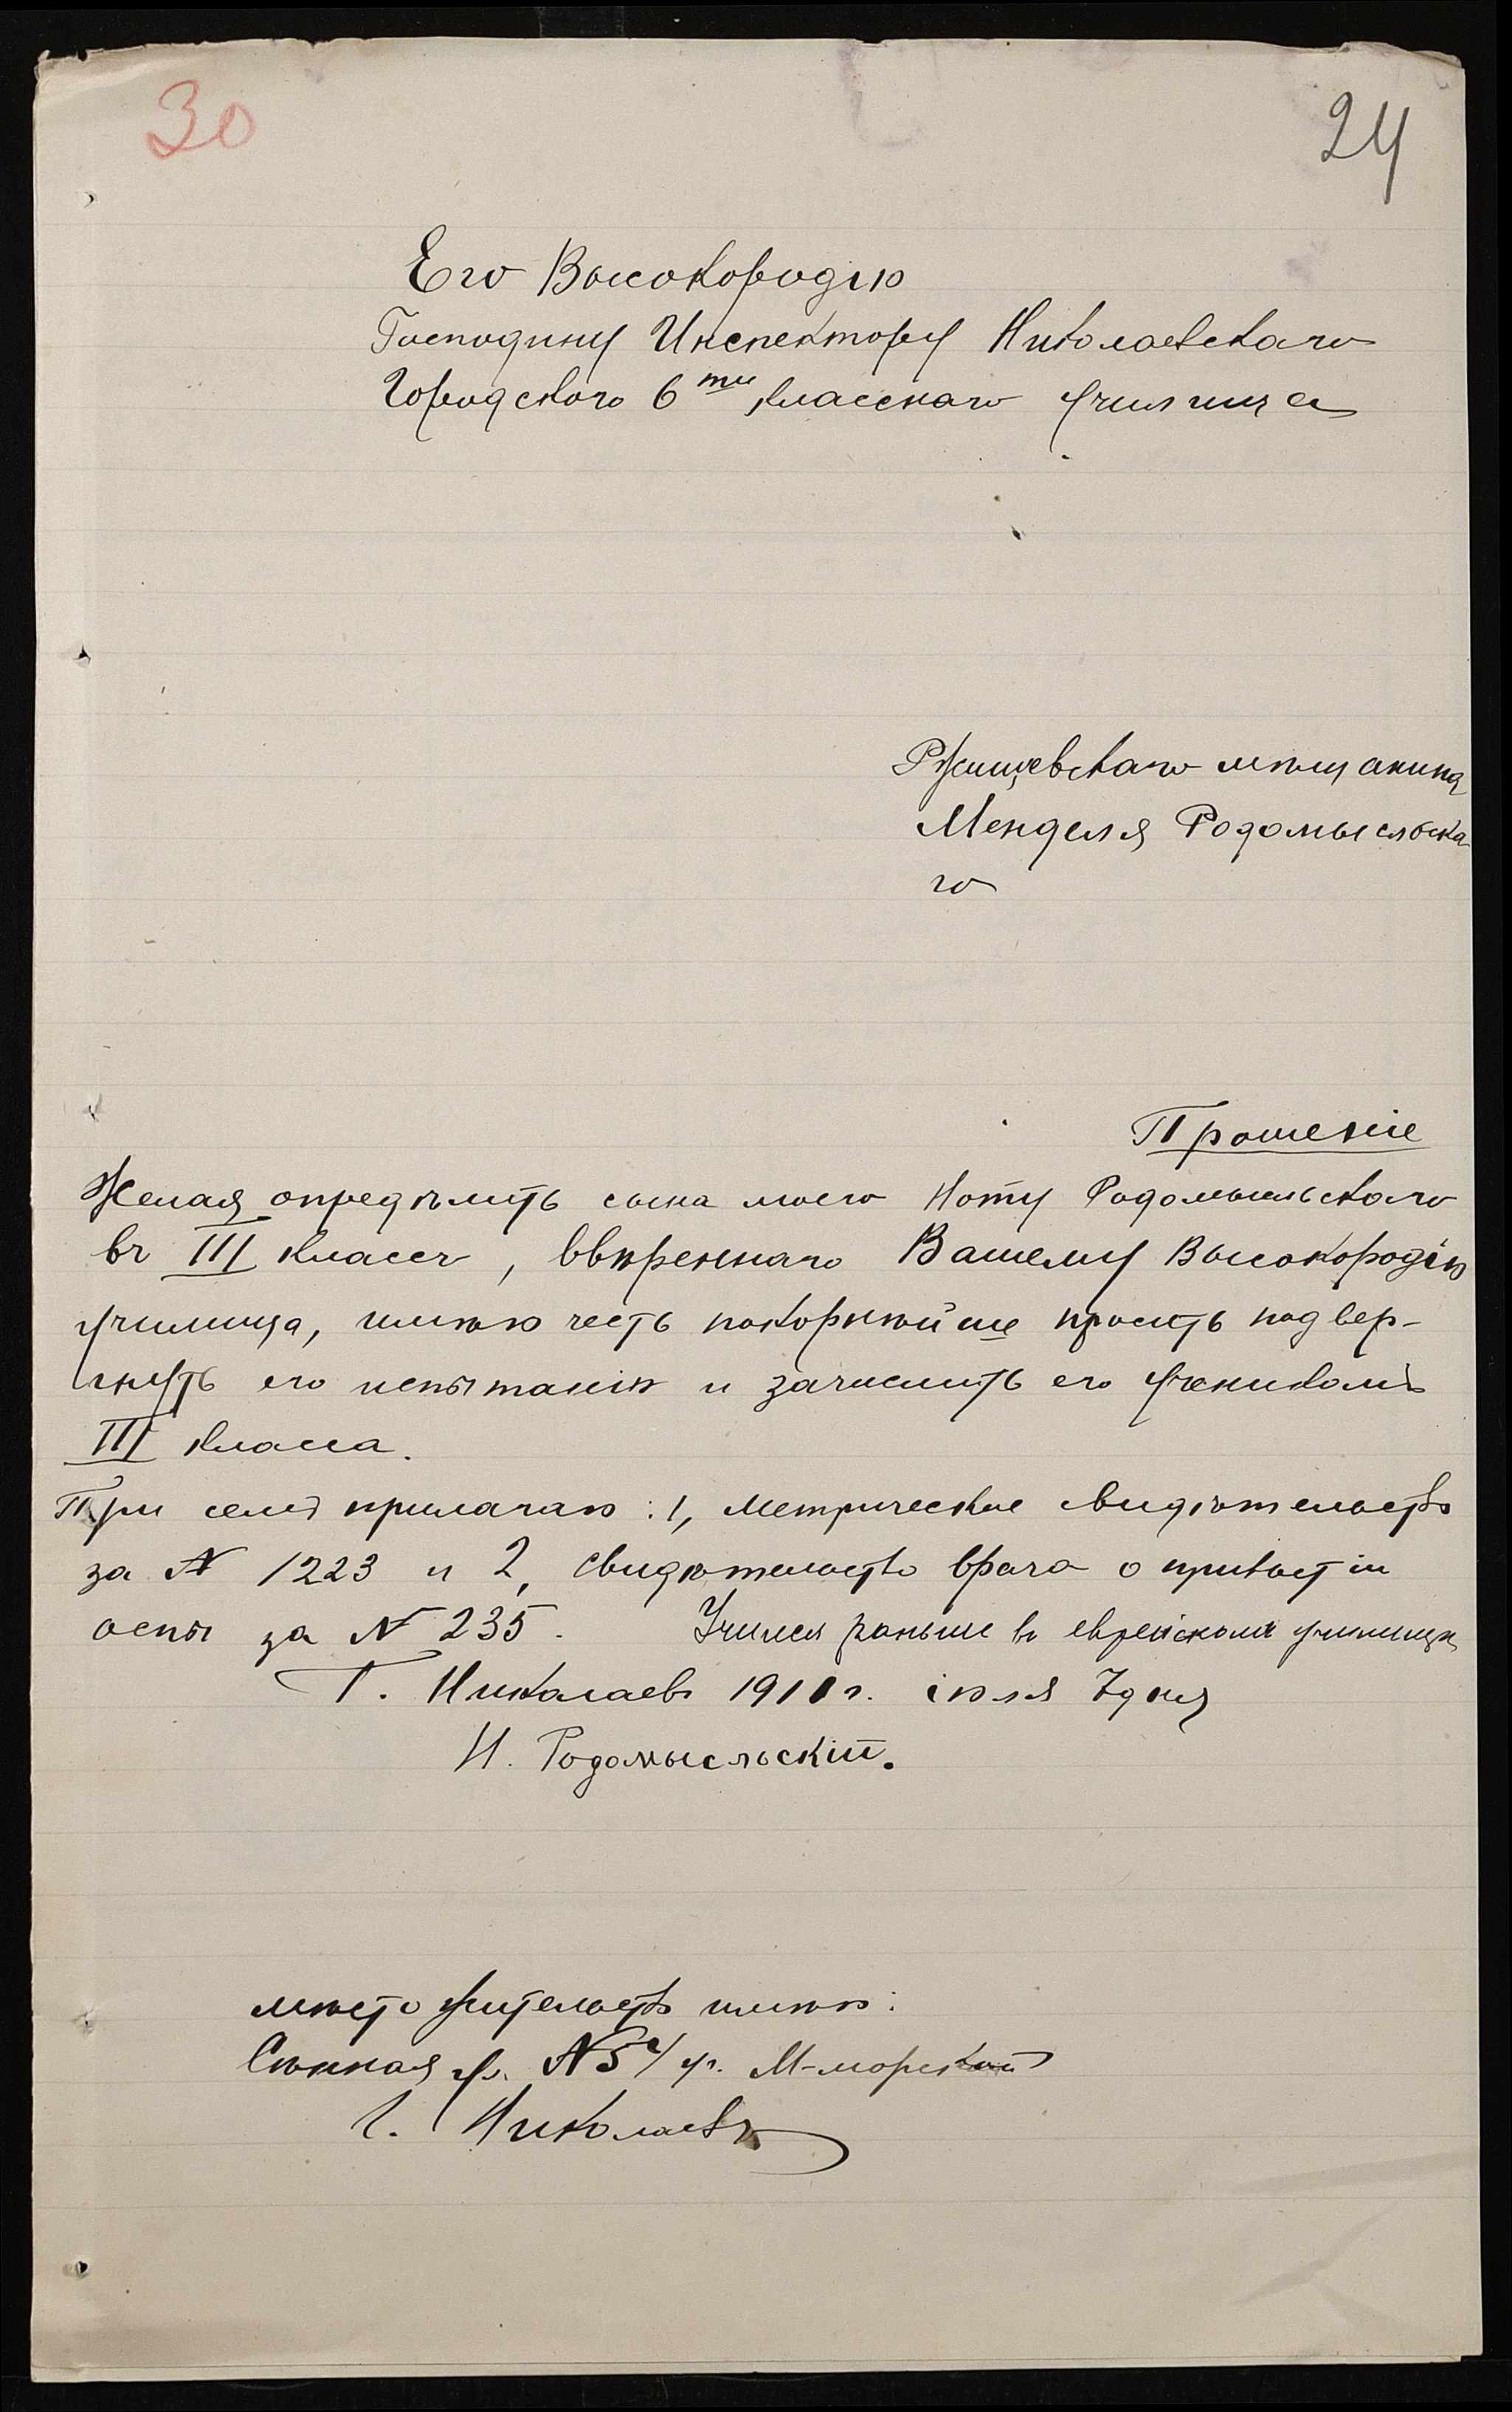 30
24
Его Высокородію
Господину Инспектору Николаевскаго
Городского 6ти класснаго училища
Ржищевскаго мѣщанина
Менделя Родомысльска-
го
Прошеніе
Желая опредѣлить сына моего Ноту Родомысльскаго
въ III классъ, ввѣреннаго Вашему Высокородію
училища, имѣю честь покорнѣйше просить подвер-
гнуть его испытанію и зачислить его ученикомъ
III класса.
При семъ прилагаю: 1, метрическое свидѣтельство
за № 1223 и 2, свидѣтельство врача о привитіи
оспы за № 235. Учился раньше въ еврейскомъ училищѣ
Г. Николаевъ 1911 г. іюля 7 дня
Родомысльскій.
мѣсто жительство имѣю:
Сѣнная ул. № 5 уг. М-морской
Г. Николаевъ